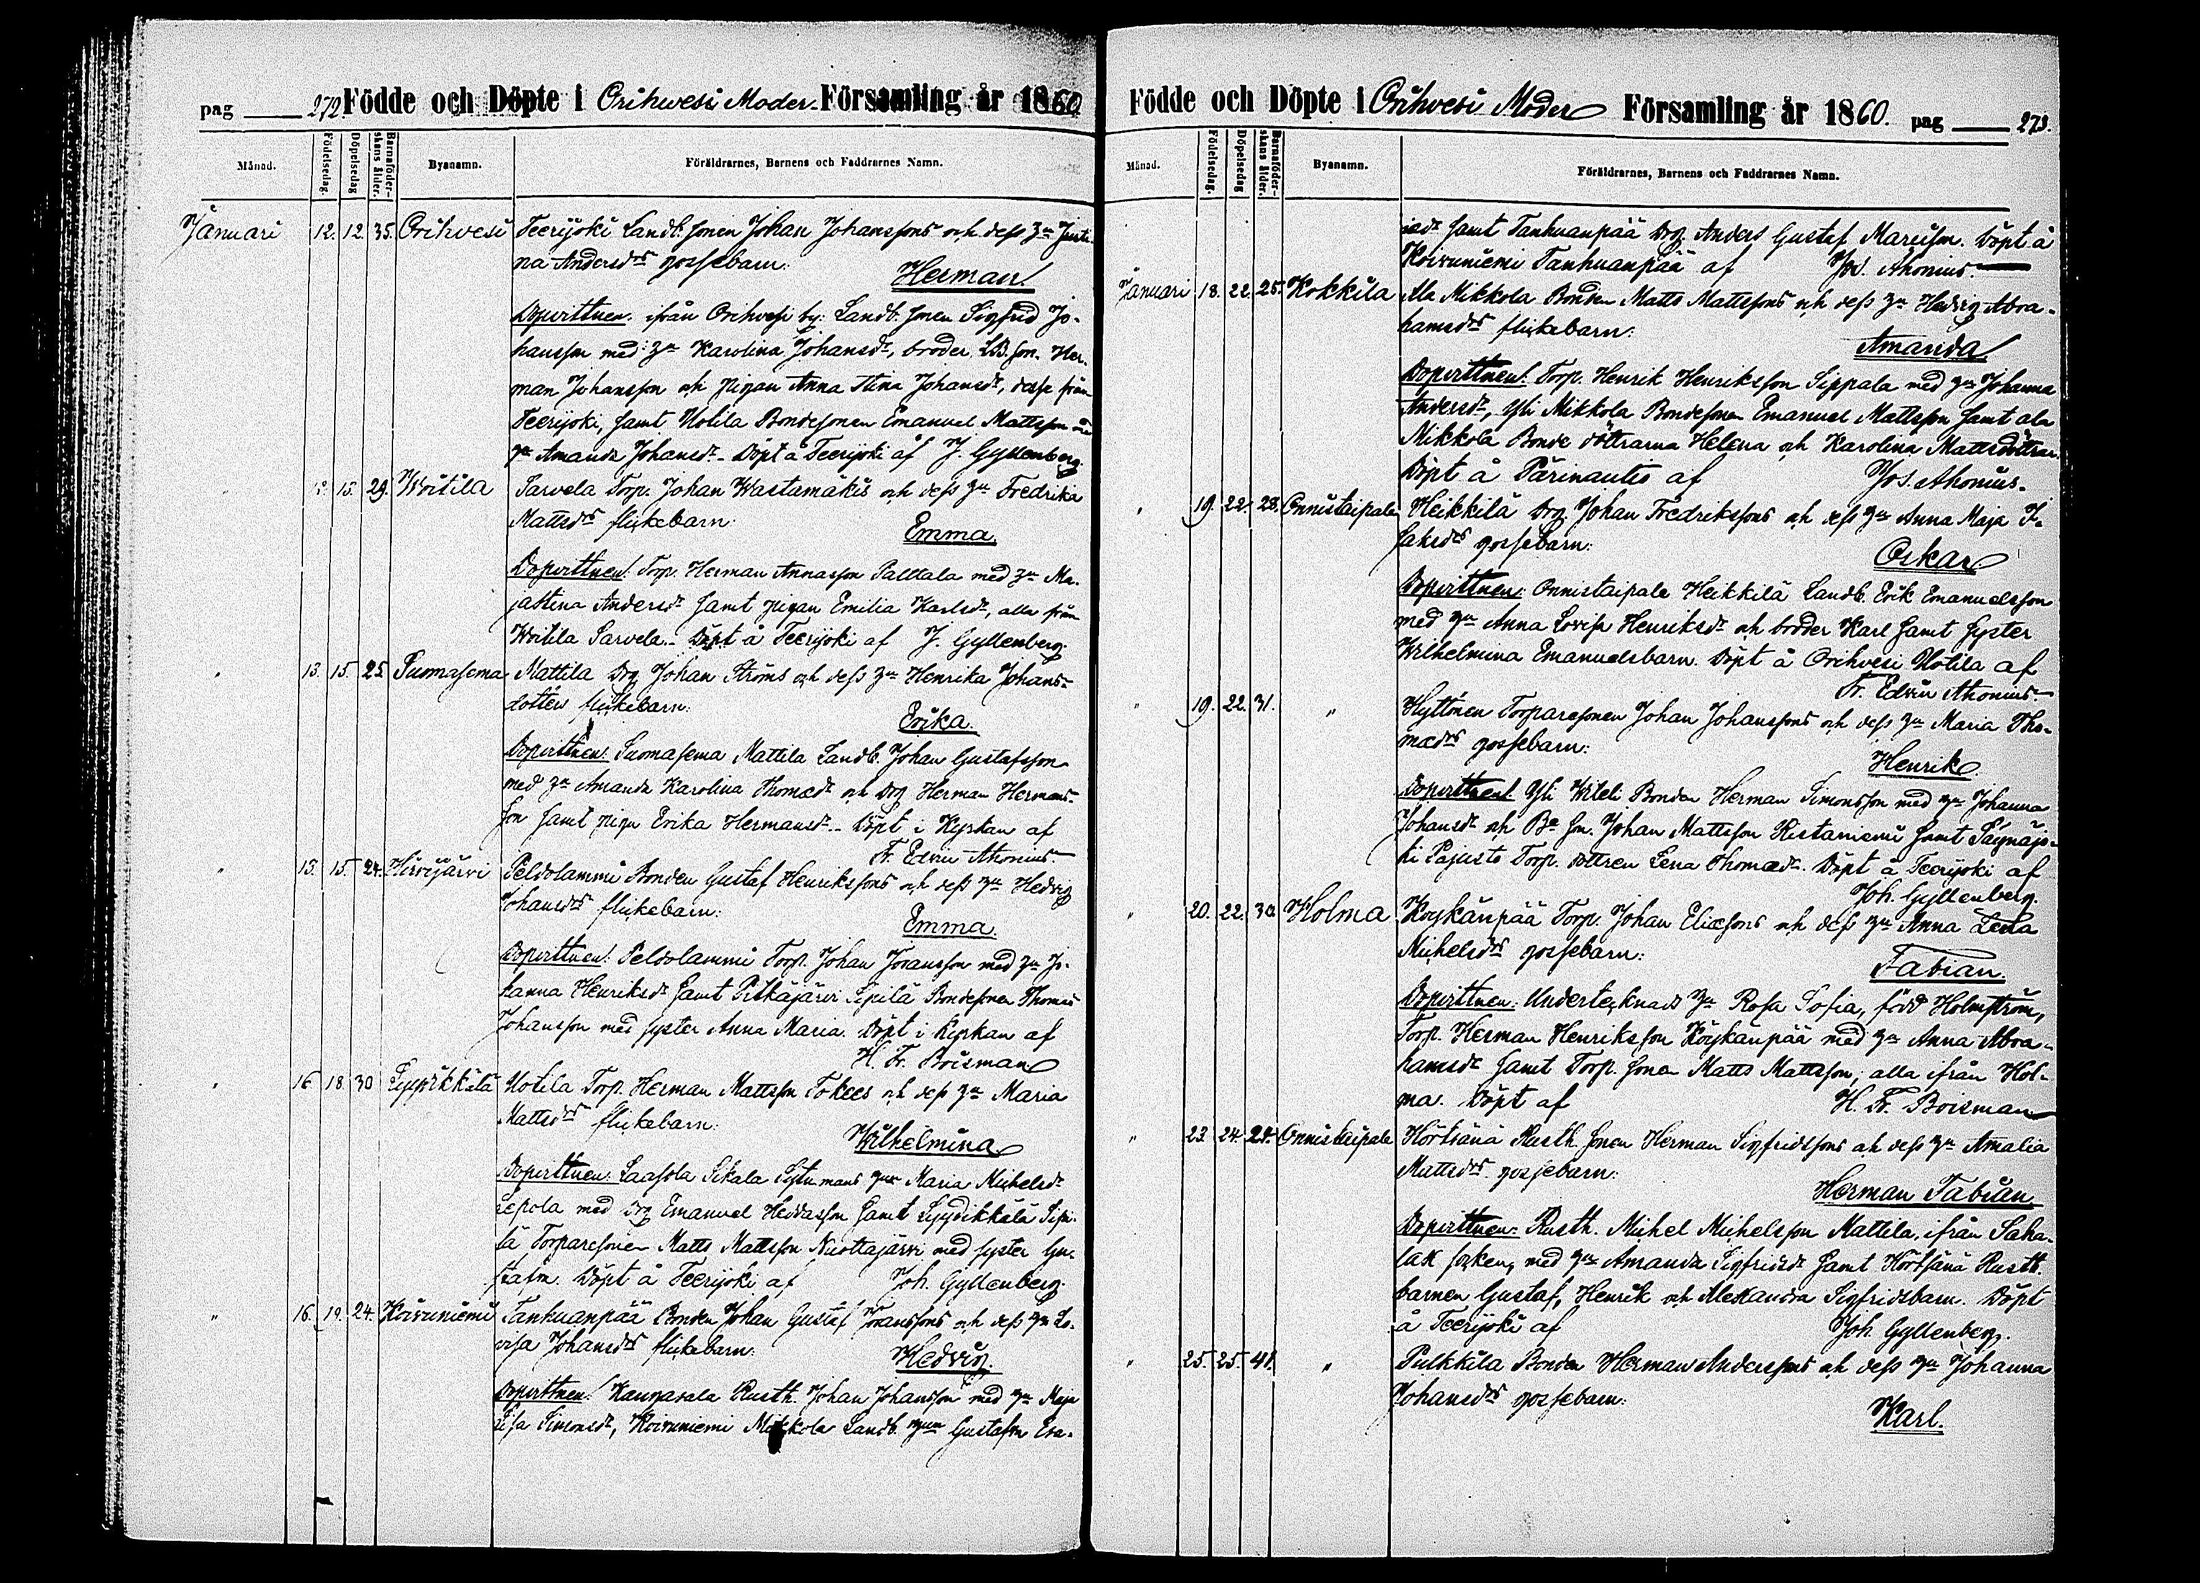 pag 272. Födde och Döpte i Orihvesi Moder Församling år 1860
Månad. Födelsedag. Döpelsedag Barnaföderskans ålder. Byanamn. Föräldrarnes, Barnens och Faddrarnes Namn.
Januari 12. 12. 35. Orihvesi Teerijoki Landb. sonen Johan Johanssons och dess hu Justi-
na Andersdrs gossebarn:
Herman
Dopvittnen: ifrån Orihvesi by: Landb. sonen Sigfrid Jo-
hansson med hu Karolina Johansdr, broder LB. son. Her-
man Johansson och pigan Anna Stina Johansdr, desse från
Teerijoki, samt Uotila Bondesonen Emanuel Mattsson med
hu Amanda Johansdr. Döpt å Teerijoki af J. Gyllenberg.
" 12. 15. 29. Woitila Sarvela Torp. Johan Wastamäkis och dess hu Fredrika
Mattsdrs flickebarn:
Emma.
Dopvittnen: Torp. Herman Annasson Palttala med hu Ma-
jastina Andersdr samt pigan Emilia Karlsdr, alla från
Woitila Sarvela. Döpt å Teerijoki af J. Gyllenberg.
" 13. 15. 25. Suomasema Mattila Drg Johan Ströms och dess hu Henrika Johans-
dotters flickebarn:
Erika.
Dopvittnen: Suomasema Mattila Landb. Johan Gustafsson
med hu Amanda Karolina Thomædr och Drg Herman Hermans-
son samt pigan Erika Hermansdr. Döpt i Kyrkan af
Fr. Edvin Ahonius.
" 15. 15. 24. Hirvijärvi Peldolammi Bonden Gustaf Henrikssons och dess hu Hedvig
Johansdrs flickebarn:
Emma.
Dopvittnen: Peldolammi Torp. Johan Joransson med hu Jo-
hanna Henriksdr samt Pitkäjärvi Sipilä Bondesonen Thomas
Johansson med syster Anna Maria. Döpt i Kyrkan af
H. Fr. Boisman
" 16 18 30 Lyydikkälä Uotila Torp. Herman Mattsson Tokees och dess hu Maria
Mattsdrs flickebarn:
Wilhelmina
Dopvittnen: Laasola Sikala hu Maria Michelsdr
Lepola med Drg Emanuel Heddasson samt Lyydikkälä Sipi-
lä Torparesonen Matts Mattsson Nuottajärvi med syster Gu-
stafva. Döpt å Teerijoki af Joh. Gyllenberg.
" 16. 19. 24. Koivuniemi Tanhuanpää Bonden Johan Gustaf Joranssons och dess hu Lo-
visa Johansdrs flickebarn:
Hedvig.
Dopvittnen: Kangasala Rusth. Johan Johansson med hu Maja
Lisa Simonsdr, Koivuniemi Mikkola Landb. hu Gustafva Esa-
Födde och Döpte i Orihvesi Moder Församling år 1860. pag 273.
Månad. Födelsedag. Döpelsedag Barnaföderskans ålder. Byanamn. Föräldrarnes, Barnens och Faddrarnes Namn.
iadr samt Tanhuanpää Drg. Anders Gustaf Mareison. Döpt å
Koivuniemi Tanhuanpää af Jos. Ahonius.
Januari 18. 22. 25. Kokkila Ala Mikkola Bonden Matts Mattssons och dess hu Hedvig Abra-
hamsdrs flickebarn:
Amanda
Dopvittnen: Torp. Henrik Henriksson Sippala med hu Johanna
Andersdr, Yli Mikkola Bondesonen Emanuel Mattsson samt ala
Mikkola Bonde döttrarna Helena och Karolina Mattsdöttrar.
Döpt å Pärinautio af Jos. Ahonius.
" 19. 22. 28. Onnistaipale Heikkilä Drg. Johan Fredrikssons och dess hu Anna Maja I-
saksdrs gossebarn:
Oskar
Dopvittnen: Onnistaipale Heikkilä Landb. Erik Emanuelsson
med hu Anna Lovisa Henriksdr och broder Karl samt syster
Wilhelmina Emanuelsbarn. Döpt å Orihvesi Uotila af
Fr. Edvin Ahonius.
" 19. 22. 31. " Hyttinen Torparesonen Johan Johanssons och dess hu Maria Tho-
mædrs gossebarn:
Henrik.
Dopvittnen: Yli Bonden Herman Simonsson med hu Johanna
Johansdr och Be son. Johan Mattsson Ristaniemi samt Säynäjo-
ki Pajusto Torp. dottren Lena Thomædr. Döpt å Teerijoki af
Joh. Gyllenberg.
" 20. 22. 30. Holma Köykänpää Torp. Johan Eliæsons och dess hu Anna Lena
Michelsdrs gossebarn:
Fabian.
Dopvittnen: Undertecknads hu Rosa Sofia, född Holmström,
Torp. Herman Henriksson Köykänpää med hu Anna Abra-
hamsdr samt Torp. sonen Matts Mattsson, alla ifrån Hol-
ma. Döpt af H. Fr. Boisman
" 23. 24. 24. Onnistaipale Hörtsänä Rusth. sonen Herman Sigfridssons och dess hu Amalia
Mattsdrs gossebarn:
Herman Fabian
Dopvittnen: Rusth. Michel Michelsson Mattila, ifrån Saha-
laks socken, med hu Amanda Sigfridsdr samt Hörtsänä Rusth.
barnen Gustaf, Henrik och Alexandra Sigfridsbarn. Döpt
å Teerijoki af Joh. Gyllenberg.
" 25. 25. 41. " Pulkkila Bonden Herman Anderssons och dess hu Johanna
Johansdrs gossebarn:
Karl.